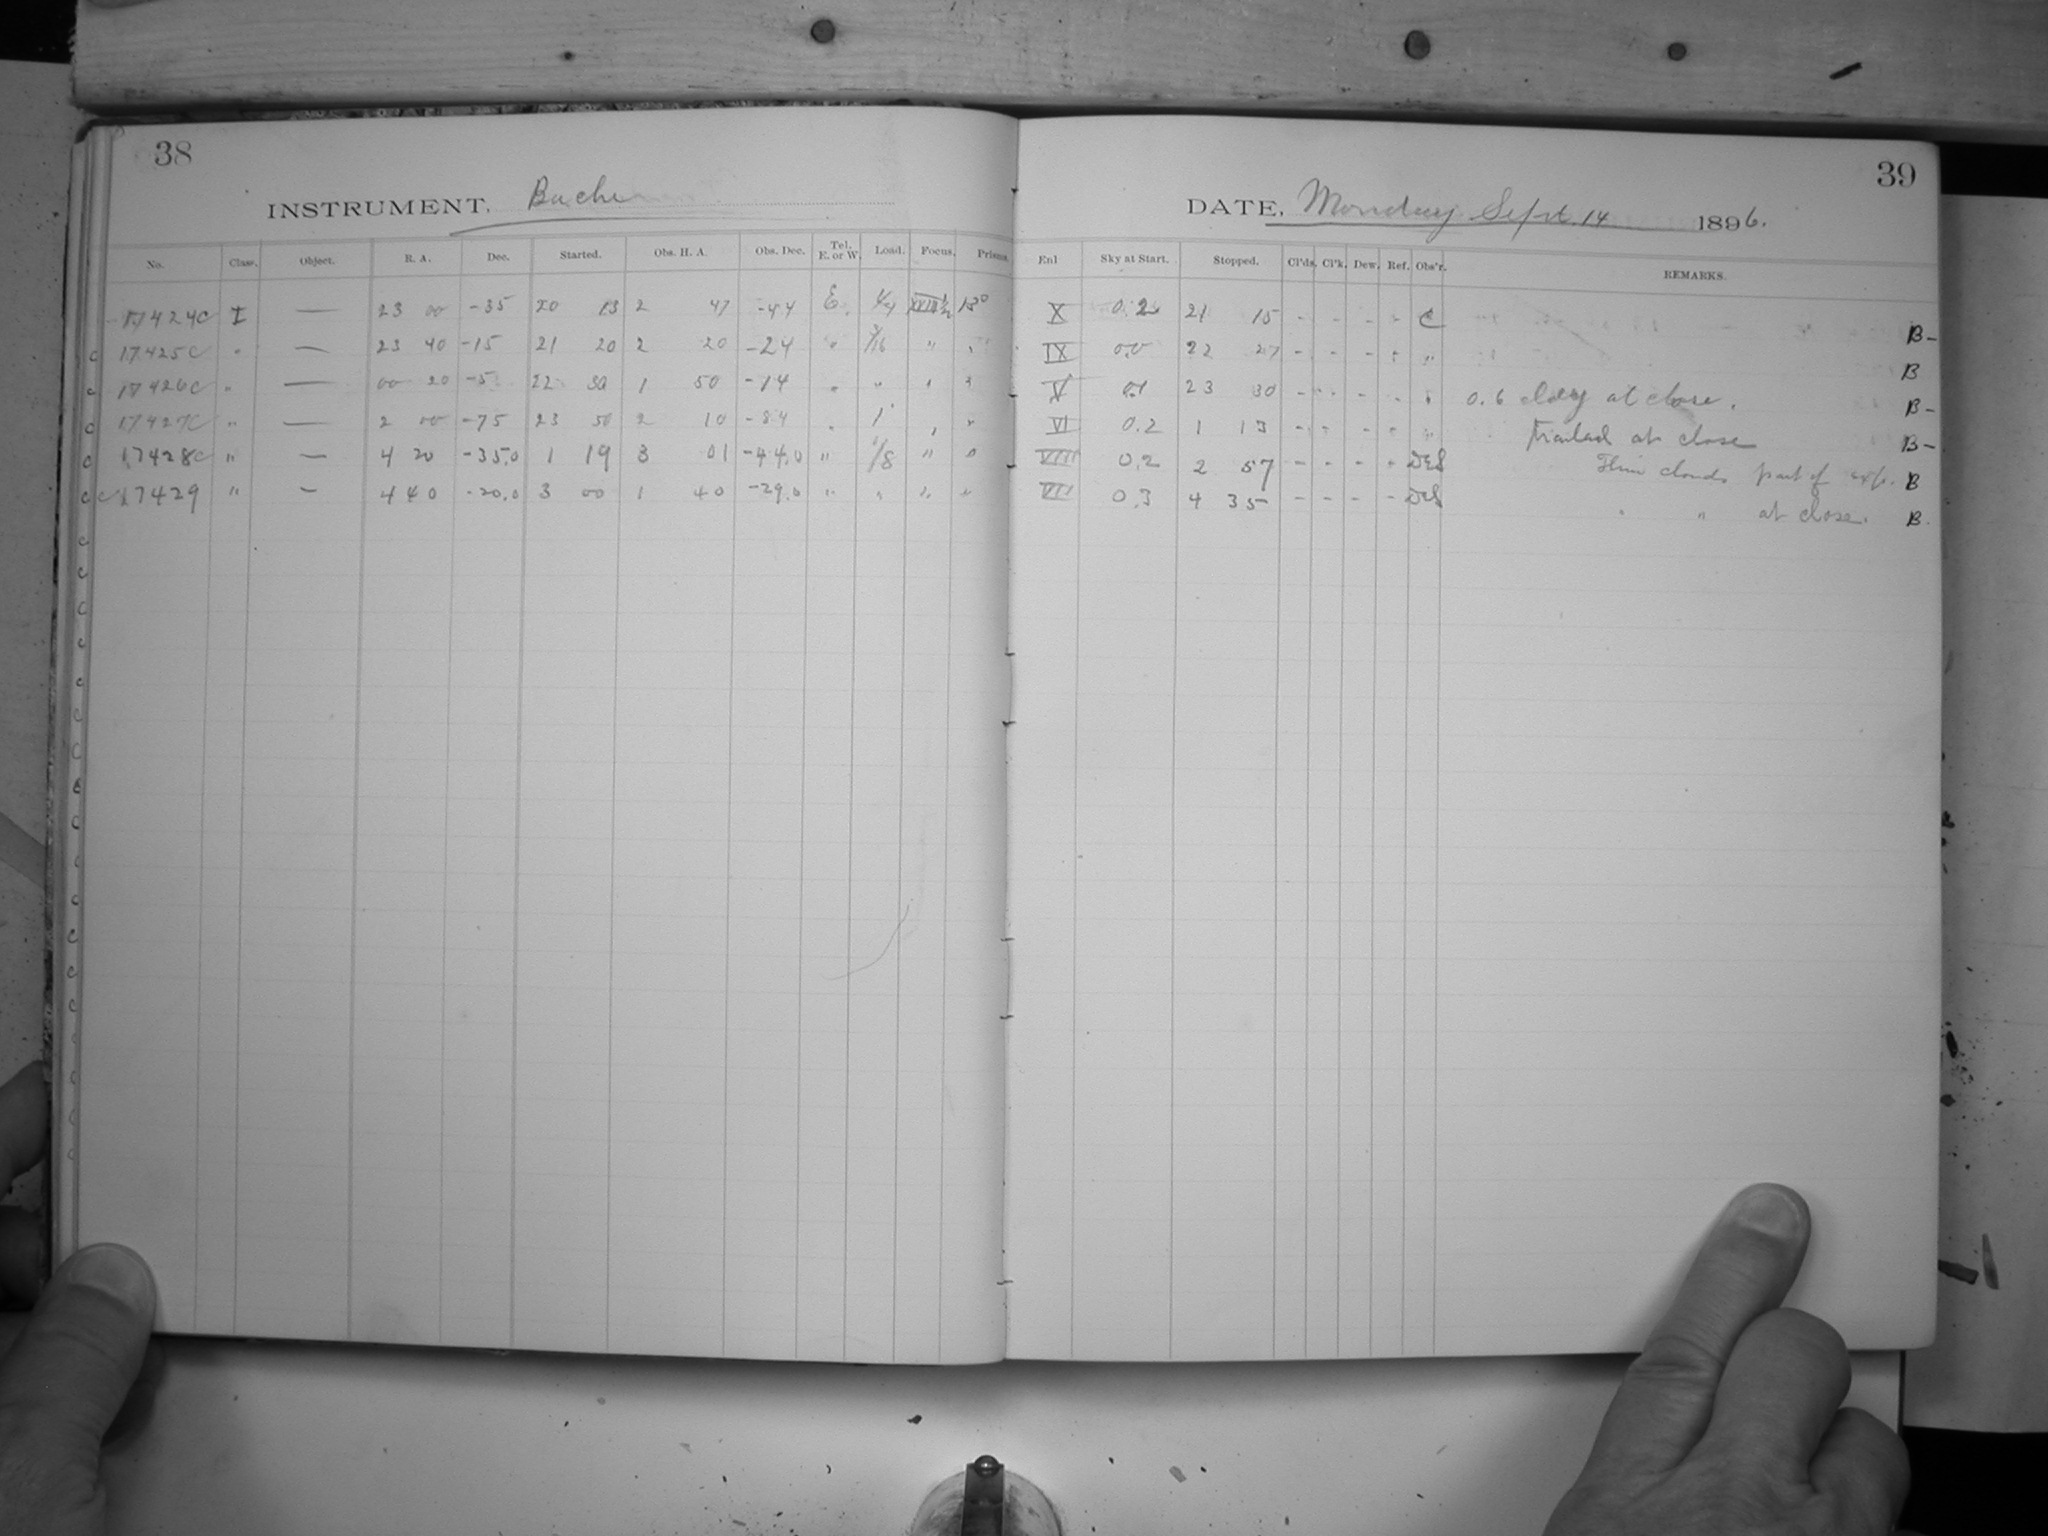 38
INSTRUMENT, Bache
No. Class. Object. R. A. Dec. Started. Obs. H. A. Obs. Dec. Tel. E. or W. Load. Focus. Prisms.
17424C I — 23 00 -35 20 13 2 47 -44 E. 1/4
17425C " — 23 40 -15 21 20 2 20 -24 " 3/16 " "
17426C " — 00 20 -5 22 30 1 50 -14 " " " "
17427C " — 2 00 -75 23 50 2 10 -84 " 1 " "
17428C " — 4 20 -35.0 1 19 3 01 -44.0 " 1/8 " "
C 17429 " — 4 40 -20.0 3 00 1 40 -29.0 " " " "
39
DATE, Monday Sept. 14 1896.
Enl Sky at Start. Stopped. Cl'ds. Cl'k. Dew. Ref. Obs'r. REMARKS.
X 0.2 21 15 - - - - C B-
IX 0.0 22 27 - - - - " B
V 0.1 23 30 - - - - " 0.6 cldy at close. B-
VI 0.2 1 13 - - - - " trailed at close B-
VIII 0.2 2 57 - - - - DES Thin clouds part of exp. B
VII 0.3 4 35 - - - - DES " " at close. B.